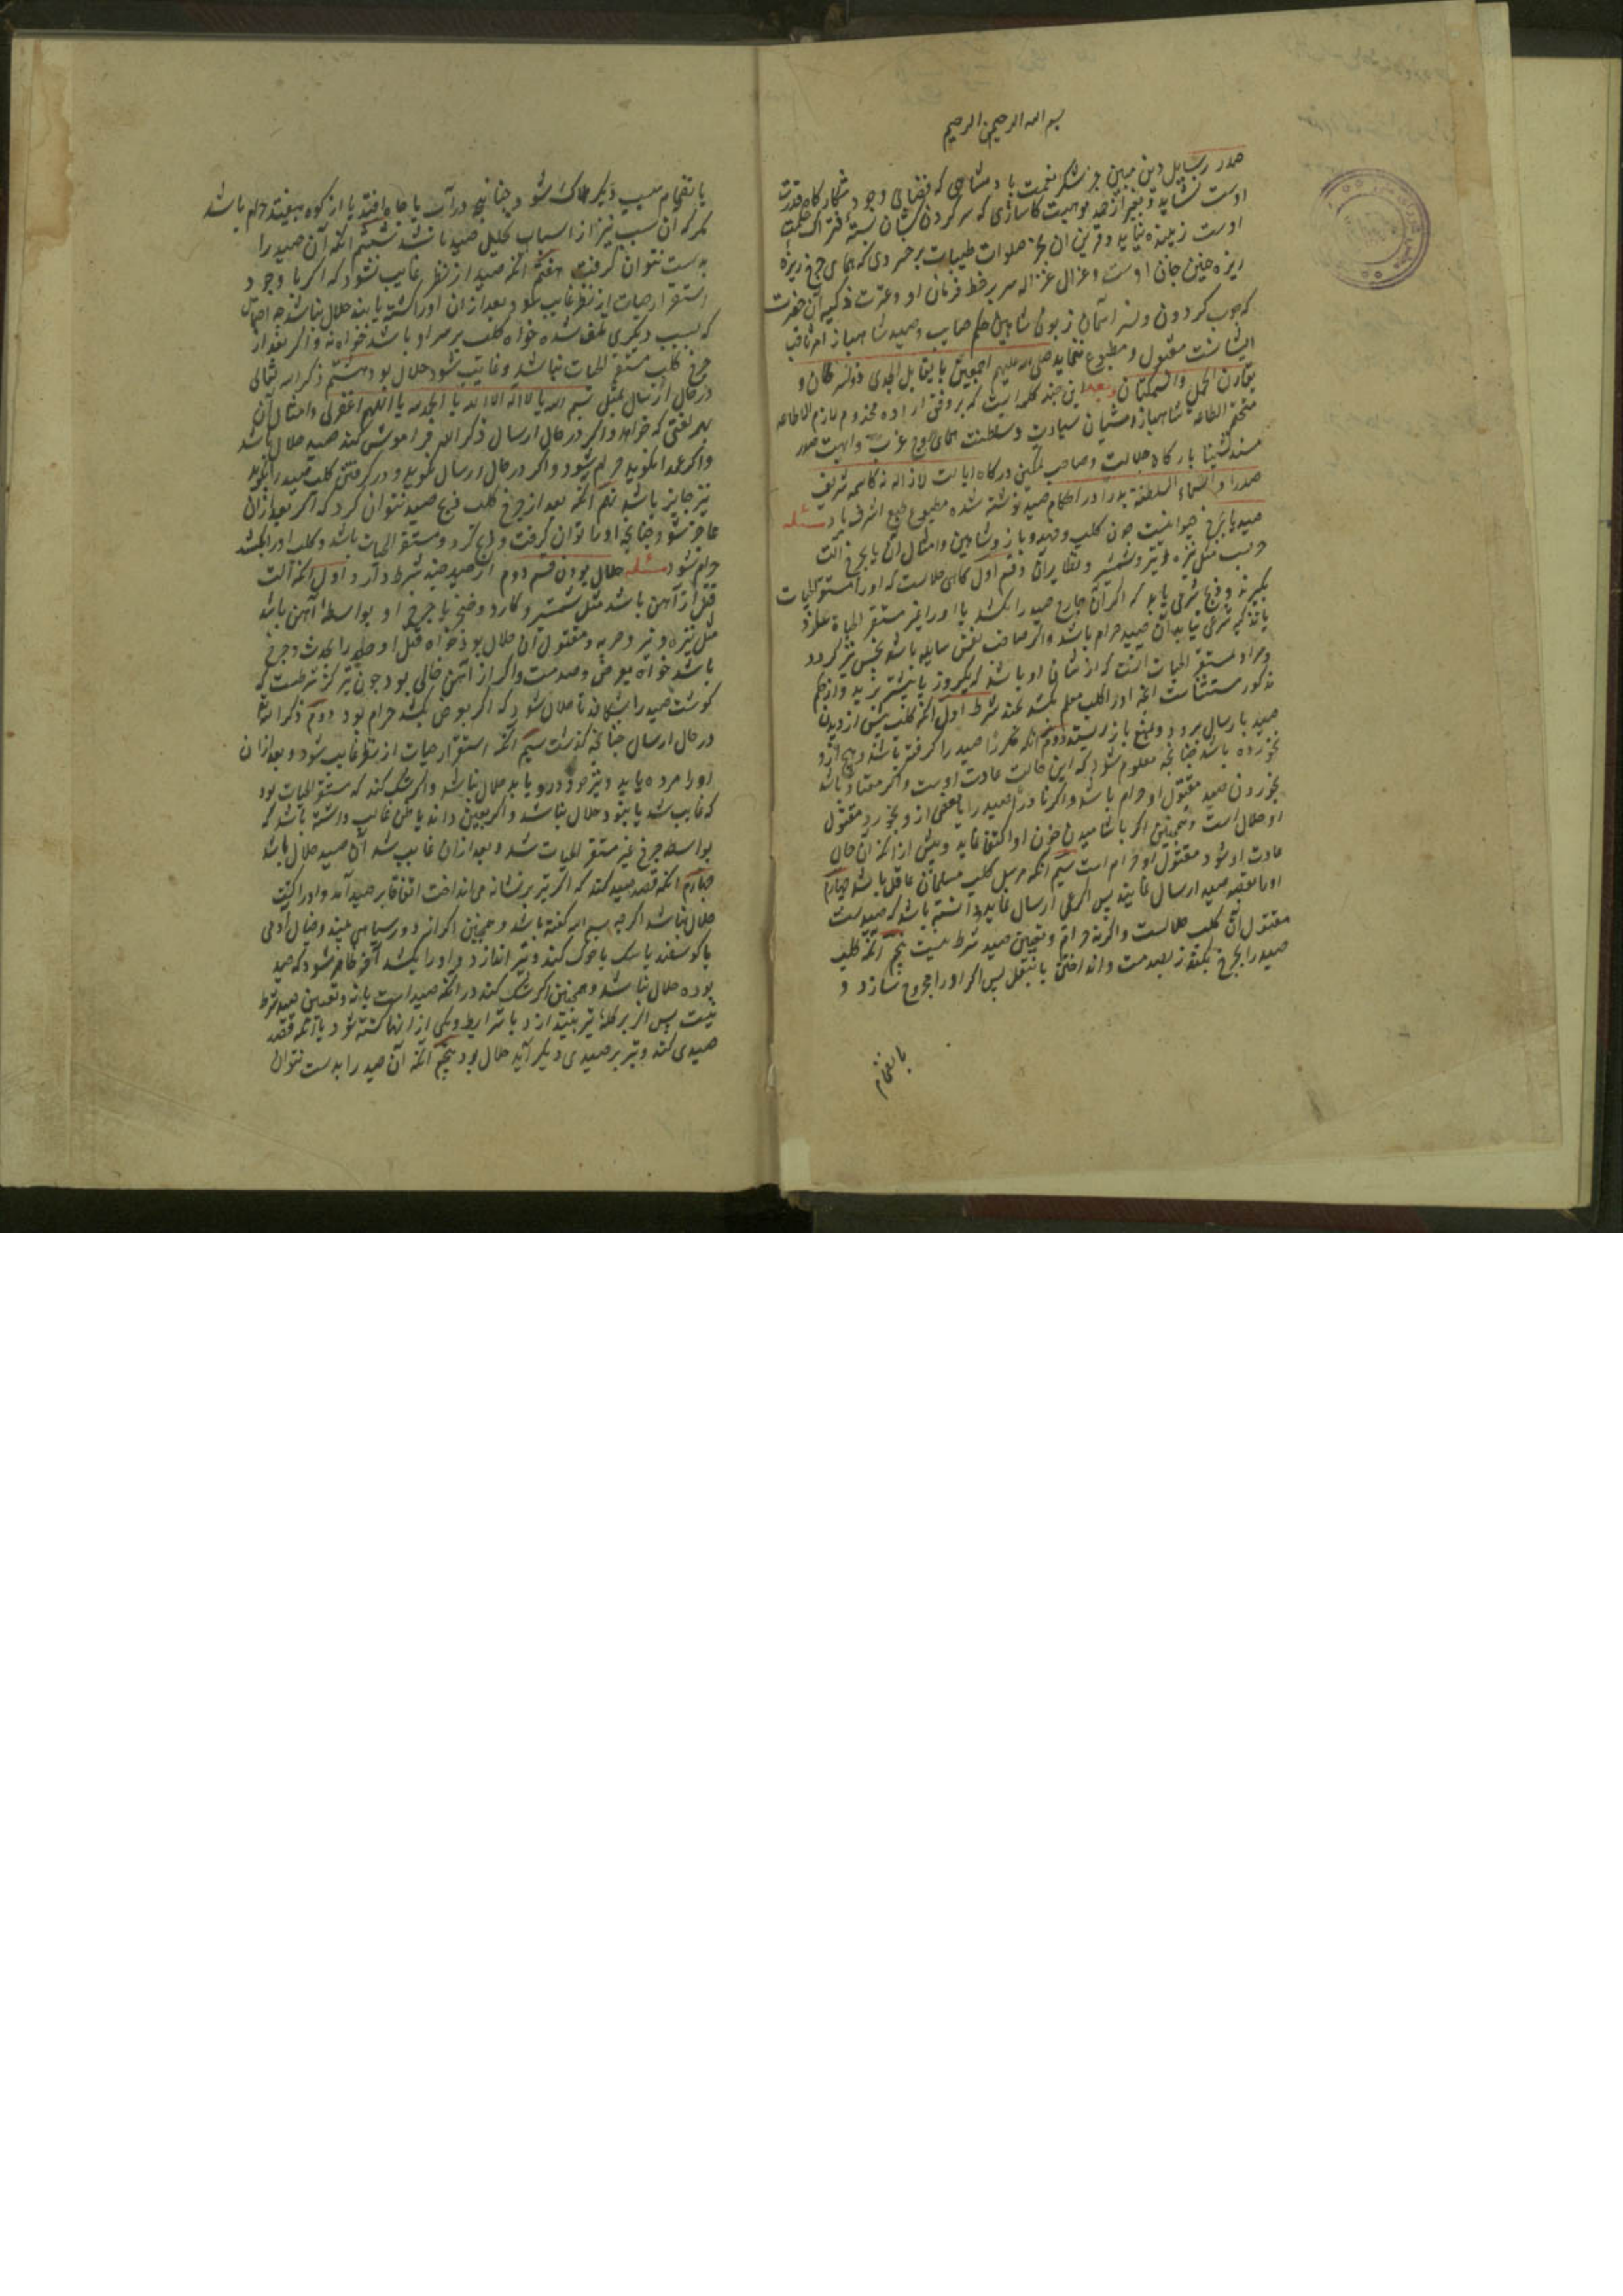 بسم الله الرحمن الرحیم
صدر رسایل دین مبین جز شکر نعمت پادشاهی که فضای وجود شکارکاه قدرت
اوست نشاید و بغیر از حمد موهبت کاسازی که سرکردن کشان بسته فتراک حکمت
اوست زیبنده نیاید و قرین آن بجز صلوات طیبات بر خسروی که همای چرخ ریزه
ریزه چین خان اوست و غزال غزاله سر بر خط فرمان او و عترت ذکیه آن حضرت
که چوب کردون و نسر آسمان زبون شاهین حکم صایب و صید شاهباز امر ثاقب
ایشانست مقبول و مطبوع ننماید صلی الله علیهم اجمعین ما یقابل الجدی ذو نسر طان و
یقارن الحمل والسمکتان وبعد این چند کلمه ایست که بر وفق اراده مخدوم لازم الاطاعه
متحتم الطاعه شاهباز آشیان سیادت و سلطنت همای اوج عزت و ابهت صدر
مسند نشینا بارکاه جلالت و صاحب تمکین درکاه ایالت لا زال کاسمه شریف
صدرا و السماء السلطنة بدرا در احکام صید نوشته شده مطبوع طبع اشرف باد مسئله
صید یا بجرح حیوانیست چون کلب و فهد و باز و شاهین و امثال آن یا بجرح آلت
حربست مثل نیزه و تیر و شمشیر و نظایر آن و قسم اول کاهی حلالست که او را مستقر الحیات
بگیرند و ذبح شرعی یابد که اگر آن جارح صید را بکشد یا او را غیر مستقر الحیاة سازد
یا تذکیه شرعی نیابد آن صید حرام باشد و اگر صاحب نفس سایله باشد نجس نیز گردد
و مراد مستقر الحیات آنست که از شان او باشد که یکروز یا بیشتر بزید و از حکم
مذکور مستثناست آنچه او را کلب معلم بکشد بچند شرط اول آنکه کلب پیش از دیدن
صید بارسال برود و بمنع باز ایستد دوم آنکه مکررا صید را گرفته باشد و هیچ ازو
نخورده باشد چنانچه معلوم شود که این حالت عادت اوست و اگر معتاد باشد
بخوردن صید مقتول او حرام باشد و اگر نادرا صید را یا بعضی از و بخورد مقتول
او حلال است و همچنین اگر باشامیدن خون او اکتفا نماید و پیش از آنکه آن حال
عادت او شود مقتول او حرام است سیم آنکه مرسل کلب مسلمان عاقل باشد چهارم
او را بقصد صید ارسال نماید پس اگر بی ارسال نماید و دانسته باشد که صیدست
مقتول آن کلب حلالست و اگر نه حرام و تعیین صید شرط نیست پنجم آنکه کلب
صید را بجرح بکشد نه بصدمت و انداختن یا بثقل پس اگر او را مجروح نسازد و
بانضمام
یا بانضمام سبب دیگر هلاک شود چنانچه در آب یا چاه افتد یا از کوه بیفتد حرام باشد
مگر که آن سبب نیز از اسباب تحلیل صید باشد ششم آنکه آن صید را
بدست نتوان گرفت هفتم آنکه صید از نظر غایب نشود که اگر با وجود
استقرار حیات از نظر غایب شود و بعد از آن او را کشته یابند حلال نباشد چه احتمال
که بسبب دیگری تلف شده خواه کلب بر سر او باشد خواه نه و اگر بعد از
جرح کلب مستقر الحیات نباشد و غایب شود حلال بود هشتم ذکر الله تعالی
در حال ارسال بمثل بسم الله یا لا اله الا الله یا الحمد لله یا اللهم اغفر لی و امثال آن
بهر لغتی که خواهد و اگر در حال ارسال ذکر الله فراموش کند صید حلال باشد
و اگر عمدا نگوید حرام شود و اگر در حال ارسال نگوید و در گرفتن کلب صید را بگوید
نیز جایز باشد نهم آنکه بعد از جرح کلب ذبح صید نتوان کرد که اگر بعد از آن
عاجز شود چنانچه او را توان گرفت و ذبح کرد و مستقر الحیات باشد و کلب او را بکشد
حرام شود مسئله حلال بودن قسم دوم از صید چند شرط دارد اول آنکه آلت
قتل از آهن باشد مثل شمشیر و کارد و خنجر یا جرح او بواسطه آهن باشد
مثل نیزه و تیر و حربه و مقتول آن حلال بود خواه قتل او صید را بحدت و جرح
باشد خواه بعرض و صدمت و اگر از آهن خالی بود چون تیر گز شرطست که
گوشت صید را بشکافد تا حلال شود که اگر بعرض بکشد حرام بود دوم ذکر الله
در حال ارسال چنانچه گذشت سیم آنکه استقرار حیات از نظر غایب نشود و بعد از آن
او را مرده یابد و تیر خود درو یابد حلال نباشد و اگر شک کند که مستقر الحیات بود
که غایب شد یا نبود حلال نباشد و اگر بیقین داند یا ظن غالب داشته باشد که
بواسطه جرح غیر مستقر الحیات شد و بعد از آن غایب شد آن صید حلال باشد
چهارم آنکه قصد صید کند که اگر تیر بر نشانه می انداخت اتفاقا بر صید آمد و او را کشت
حلال نباشد اگر چه بسم الله گفته باشد و همچنین اگر از دور سیاهی بیند و خیال آدمی
یا گوسفند یا سگ یا خوک کند و تیر اندازد و او را بکشد آخر ظاهر شود که صید
بوده حلال نباشد و همچنین اگر شک کند در آنکه صید است یا نه و تعیین صید شرط
نیست پس اگر بر گله تیر بیندازد با شرایط و یکی از آنها کشته شود یا آنکه قصد
صیدی کند و تیر بر صیدی دیگر آید حلال بود پنجم آنکه آن صید را بدست نتوان